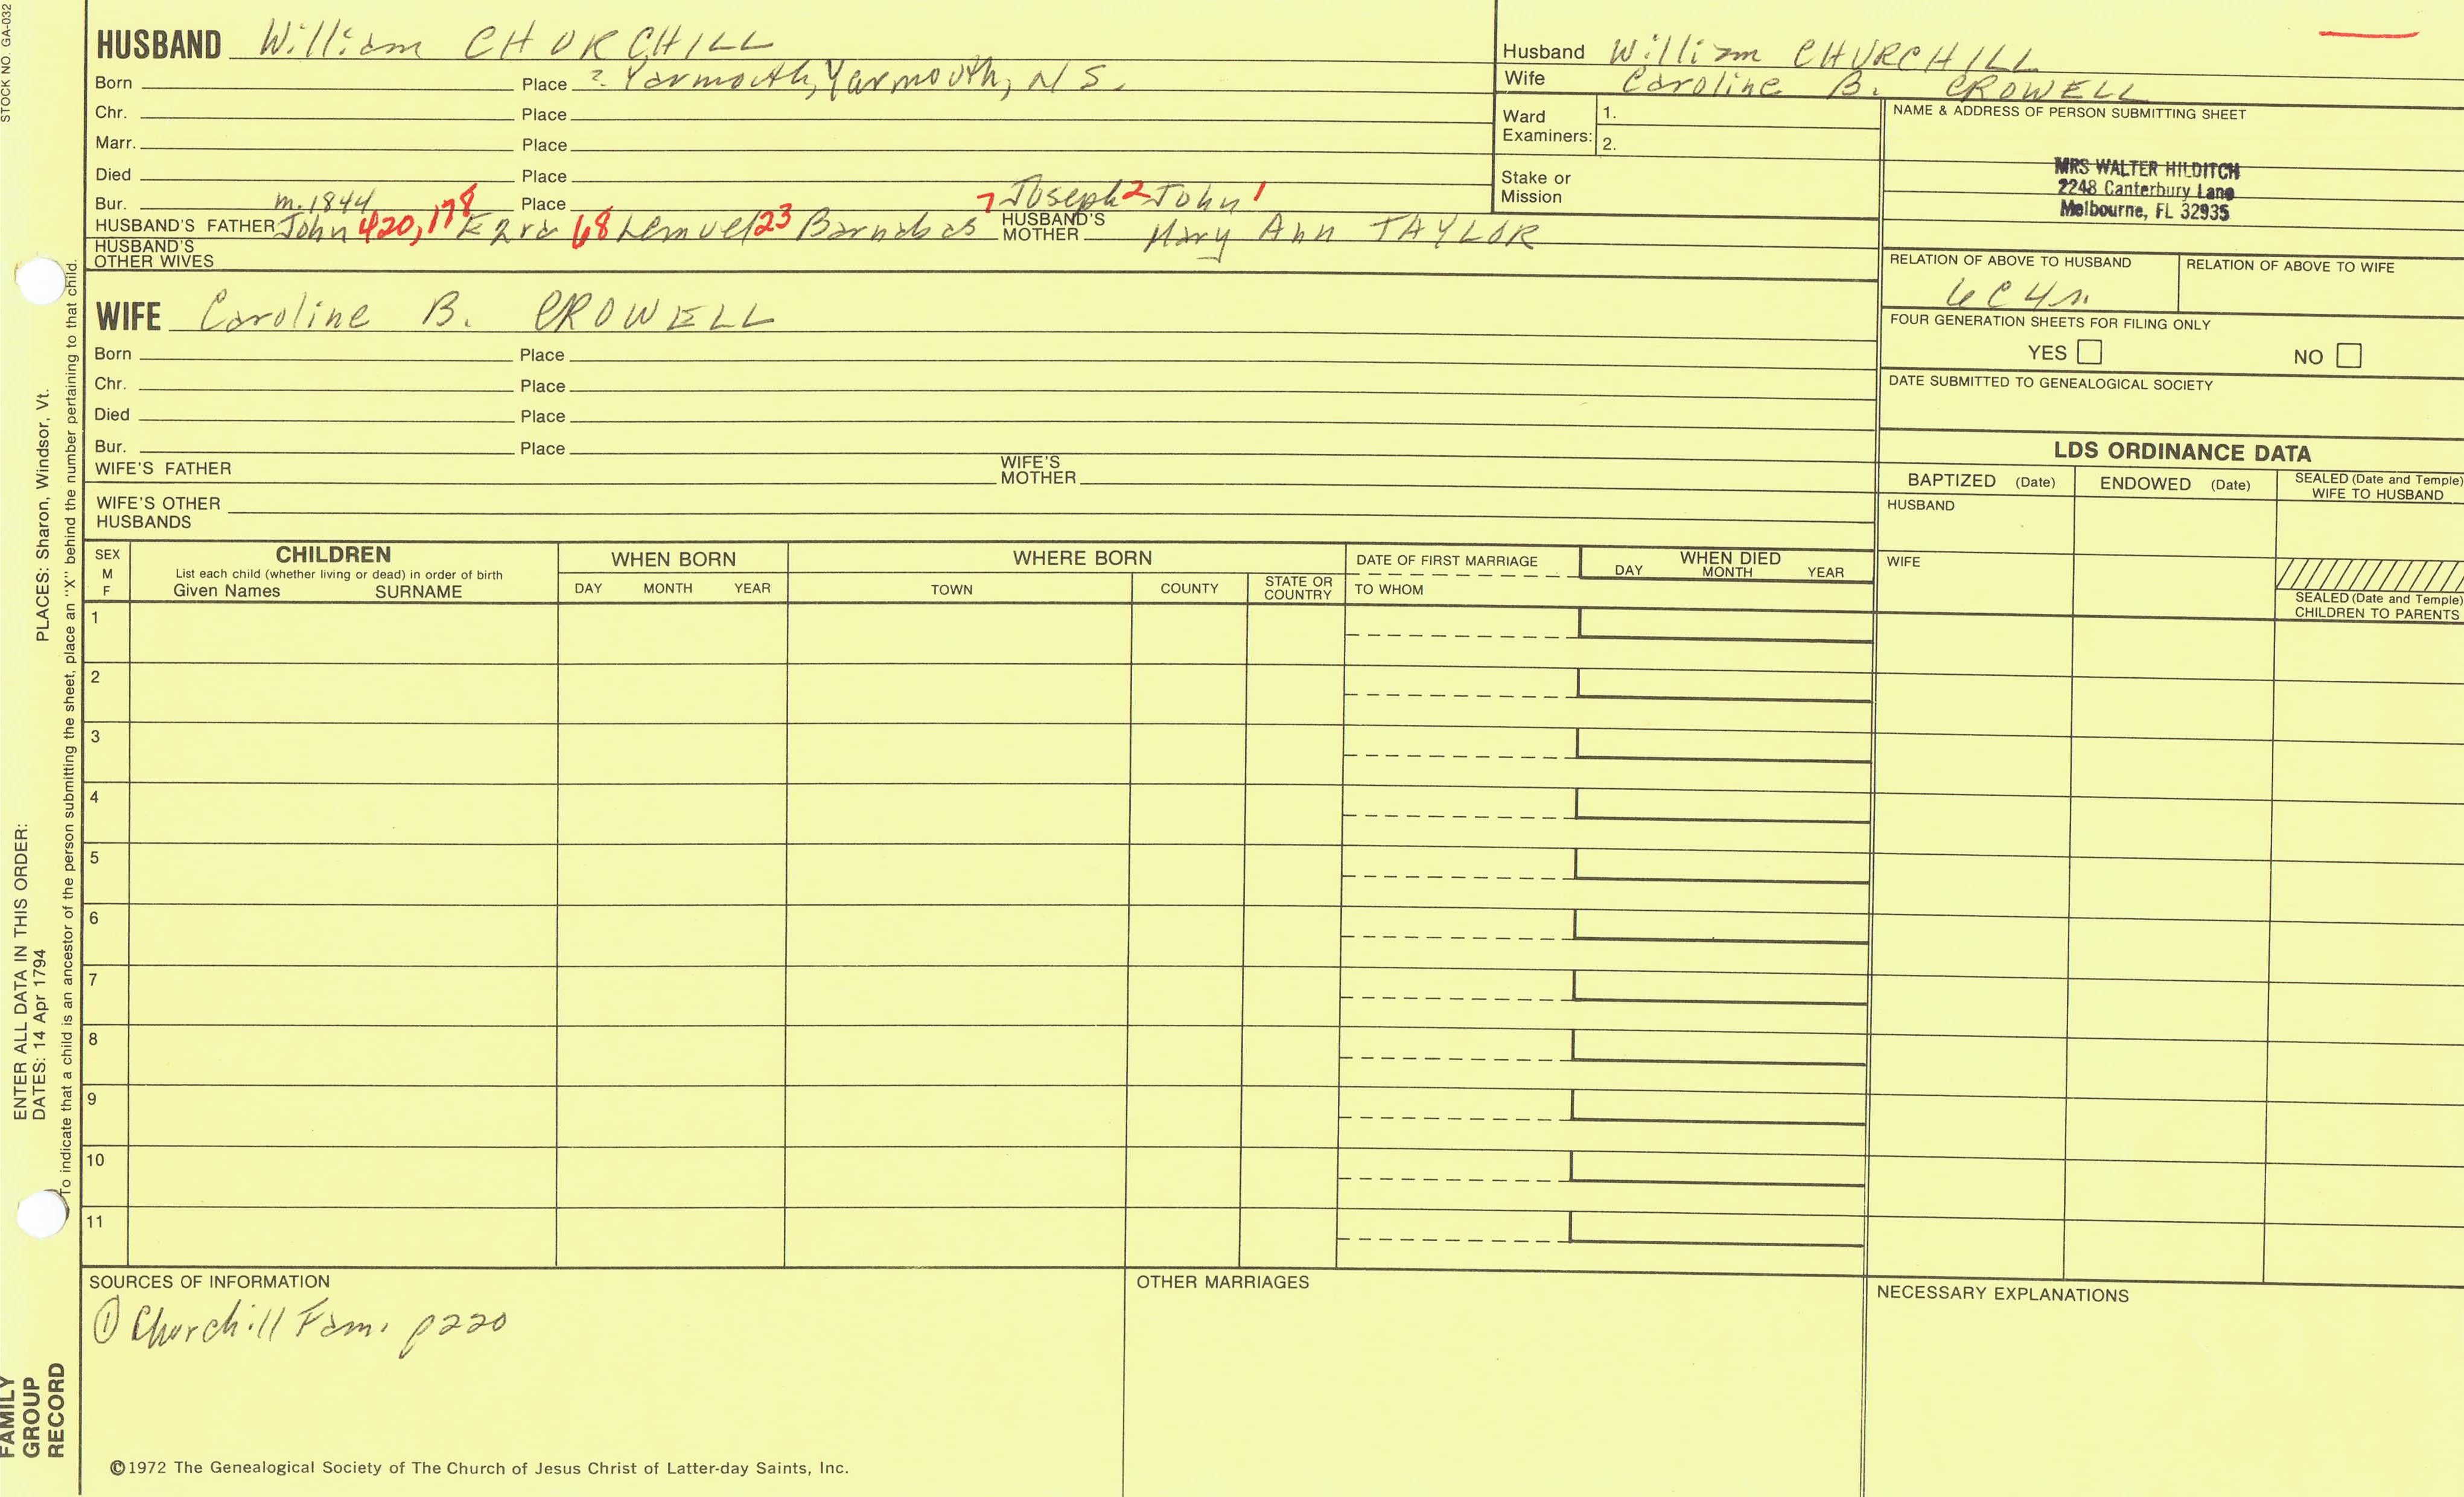 STOCK NO. GA-032
HUSBAND William CHURCHILL
Born Place ? Yarmouth, Yarmouth, N S.
Chr. Place
Marr. Place
Died Place
Bur. m. 1844 Place 7 Joseph 2 John 1
HUSBAND'S FATHER John 420, 178 Ezra 68 Lemuel 23 Barnabas HUSBAND'S MOTHER Mary Ann TAYLOR
HUSBAND'S OTHER WIVES
WIFE Caroline B. CROWELL
Born Place
Chr. Place
Died Place
Bur. Place
WIFE'S FATHER WIFE'S MOTHER
WIFE'S OTHER HUSBANDS
Husband William CHURCHILL
Wife Caroline B. CROWELL
Ward Examiners: 1.
2.
Stake or Mission
NAME & ADDRESS OF PERSON SUBMITTING SHEET
MRS WALTER HILDITCH
2248 Canterbury Lane
Melbourne, FL 32935
RELATION OF ABOVE TO HUSBAND RELATION OF ABOVE TO WIFE
6C4r
FOUR GENERATION SHEETS FOR FILING ONLY
YES NO
DATE SUBMITTED TO GENEALOGICAL SOCIETY
LDS ORDINANCE DATA
BAPTIZED (Date) ENDOWED (Date) SEALED (Date and Temple) WIFE TO HUSBAND
HUSBAND
WIFE
SEALED (Date and Temple) CHILDREN TO PARENTS
SEX M F
CHILDREN
List each child (whether living or dead) in order of birth
Given Names SURNAME
WHEN BORN
DAY MONTH YEAR
WHERE BORN
TOWN COUNTY STATE OR COUNTRY
DATE OF FIRST MARRIAGE
TO WHOM
WHEN DIED
DAY MONTH YEAR
1
2
3
4
5
6
7
8
9
10
11
SOURCES OF INFORMATION
① Churchill Fam. p220
OTHER MARRIAGES
NECESSARY EXPLANATIONS
©1972 The Genealogical Society of The Church of Jesus Christ of Latter-day Saints, Inc.
FAMILY GROUP RECORD
ENTER ALL DATA IN THIS ORDER:
DATES: 14 Apr 1794
PLACES: Sharon, Windsor, Vt.
To indicate that a child is an ancestor of the person submitting the sheet, place an "X" behind the number pertaining to that child.